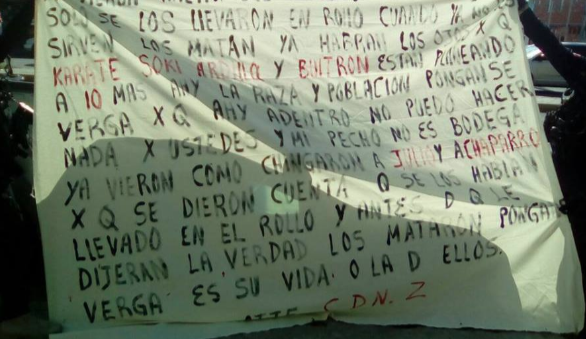 SOLO SE LOS LLEVARON EN ROLLO CUANDO YA NO ES
SIRVEN LOS MATAN YA HARPAN LOS OTOS X Q
KARATE SOKI ARDILLA Y BUITRON ESTAN PONIENDO
A 10 MAS AHY LA RAZA Y POBLACION PONGANSE
VERGA X Q AHY ADENTRO NO PUEDO HACER
NADA X USTEDES Y MI PECHO NO ES BODEGA
YA VIERON COMO CHINGARON A JULIO Y A CHAPARRO
X Q SE DIERON CUENTA Q SE LOS HABIAN
LLEVADO EN EL ROLLO Y ANTES D Q LE
DIJERAN LA VERDAD LOS MATARON PONGAN
VERGA ES SU VIDA O LA D ELLOS.
ATTE C.D.N. Z